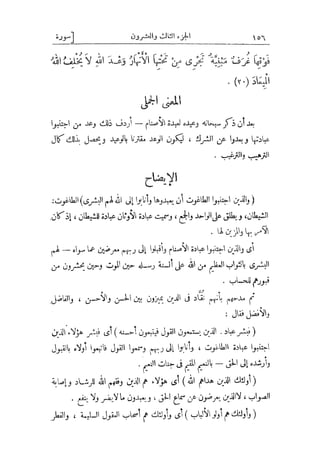 ١٥٦ الجزء الثالث والعشرون [سورة
فَوْقِهَا غُرَفٌ مَبْنِيَّةٌ تَجْرِى مِنْ تَحْتِهَا الْأَنْهَارُ وَعْدَ اللهِ لَا يُخْلِفُ اللهُ
الْمِيعَادَ (٢٠) .
المعنى الجملى
بعد أن ذكر سبحانه وعيده لعبدة الأصنام — أردف ذلك وعد من اجتنبوا
عبادتها وبعدوا عن الشرك ، ليكون الوعد مقترنا بالوعيد ويحصل بذلك كمال
الترهيب والترغيب .
الإيضاح
( والذين اجتنبوا الطاغوت أن يعبدوها وأنابوا إلى الله لهم البشرى ) الطاغوت :
الشيطان، ويطلق على الواحد والجمع ، وسميت عبادة الأوثان عبادة للشيطان ، إذ كان
الآمر بها والمزين لها .
أى والذين اجتنبوا عبادة الأصنام وأقبلوا إلى ربهم معرضين عما سواه — لهم
البشرى بالثواب العظيم من الله على ألسنة رسله حين الموت وحين يحشرون من
قبورهم للحساب .
ثم مدحهم بأنهم نُقَّاد فى الدين يميزون بين الحسن والأحسن ، والفاضل
والأفضل فقال :
( فبشر عباد . الذين يستمعون القول فيتبعون أحسنه ) أى فبشر هؤلاء الذين
اجتنبوا عبادة الطاغوت ، وأنابوا إلى ربهم وسمعوا القول فاتبعوا أولاه بالقبول
وأرشده إلى الحق — بالنعيم المقيم فى جنات النعيم .
( أولئك الذين هداهم الله ) أى هؤلاء هم الذين وفقهم الله للرشاد وإصابة
الصواب ، لا الذين يعرضون عن سماع الحق ، ويعبدون ما لا يضر ولا ينفع .
( وأولئك هم أولو الألباب ) أى وأولئك هم أصحاب العقول السليمة ، والفطر